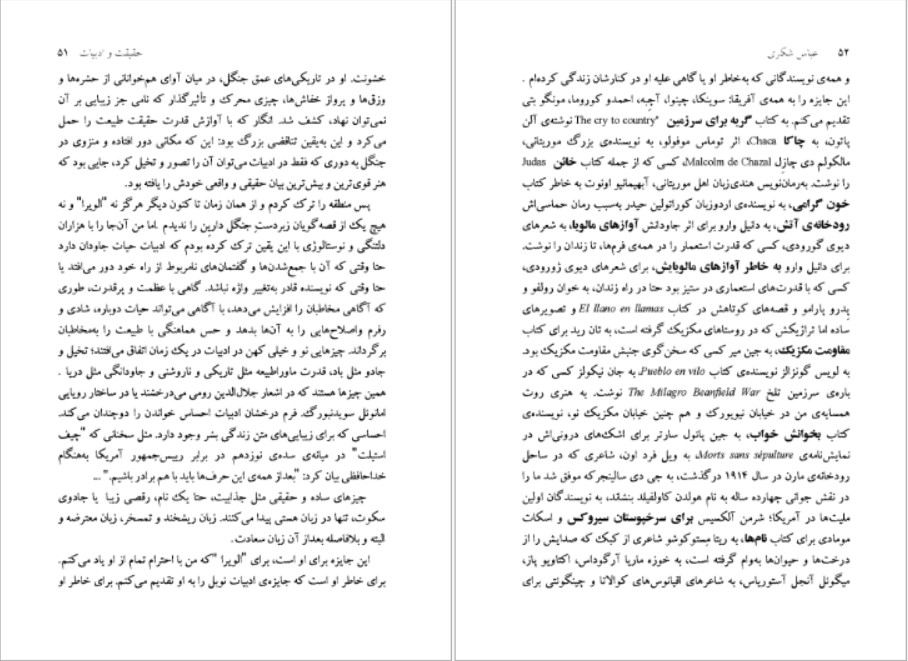 حقیقت و ادبیات ۵۱
خشونت. او در تاریکی‌های عمق جنگل، در میان آوای هم‌خوانانی از حشره‌ها و
وزق‌ها و پرواز خفاش‌ها، چیزی محرک و تأثیرگذار که نامی جز زیبایی بر آن
نمی‌توان نهاد، کشف شد. انگار که با آوازش قدرت حقیقت طبیعت را حمل
می‌کرد و این به‌یقین تناقضی بزرگ بود: این که مکانی دور افتاده و منزوی در
جنگل به دوری که فقط در ادبیات می‌توان آن را تصور و تخیل کرد، جایی بود که
هنر قوی‌ترین و بیش‌ترین بیان حقیقی و واقعی خودش را یافته بود.
پس منطقه را ترک کردم و از همان زمان تا کنون دیگر هرگز نه "الویرا" و نه
هیچ یک از قصه‌گویان زبردستِ جنگل دارین را ندیدم .اما من آن‌جا را با هزاران
دلتنگی و نوستالوژی با این یقین ترک کرده بودم که ادبیات حیات جاودان دارد
حتا وقتی که آن با جمع‌شدن‌ها و گفتمان‌های نامربوط از راه خود دور می‌افتد یا
حتا وقتی که نویسنده قادر به‌تغییر واژه نباشد. گاهی با عظمت و پرقدرت، طوری
که آگاهی مخاطبان را افزایش می‌دهد، با آگاهی می‌تواند حیات دوباره، شادی و
رفرم واصلاح‌هایی را به آن‌ها بدهد و حس هماهنگی با طبیعت را به‌مخاطبان
برگرداند. چیزهایی نو و خیلی کهن در ادبیات در یک زمان اتفاق می‌افتند؛ تخیل و
جادو مثل باد، قدرت ماوراطبیعه مثل تاریکی و ناروشنی و جاودانگی مثل دریا .
همین چیزها هستند که در اشعار جلال‌الدین رومی می‌درخشند یا در ساختار رویایی
امانوئل سویدنبورگ. فرم درخشان ادبیات احساس خواندن را دوچندان می‌کند.
احساسی که برای زیبایی‌های متن زندگی بشر وجود دارد. مثل سخنانی که "چیف
استیلت" در میانه‌ی سده‌ی نوزدهم در برابر رییس‌جمهور آمریکا به‌هنگام
خداحافظی بیان کرد: "بعداز همه‌ی این حرف‌ها باید با هم برادر باشیم."...
چیزهای ساده و حقیقی مثل جذابیت، حتا یک نام، رقصی زیبا یا جادوی
سکوت، تنها در زبان هستی پیدا می‌کنند. زبان ریشخند و تمسخر، زبان معترضه و
البته و بلافاصله بعداز آن زبان سعادت.
این جایزه برای او است، برای "الویرا "که من با احترام تمام از او یاد می‌کنم.
برای خاطر او است که جایزه‌ی ادبیات نوبل را به او تقدیم می‌کنم. برای خاطر او
۵۲ عباس شکری
و همه‌ی نویسندگانی که به‌خاطر او یا گاهی علیه او در کنارشان زندگی کرده‌ام .
این جایزه را به همه‌ی آفریقا: سوینکا، چینوا، آچبه، احمدو کوروما، مونگو بتی
تقدیم می‌کنم. به کتاب گریه برای سرزمین "The cry to country نوشته‌ی آلن
پاتون، به چاکا Chaca، اثر توماس موفولو، به نویسنده‌ی بزرگ موریتانی،
مالکولم دی چازل Malcolm de Chazal، کسی که از جمله کتاب خائن Judas
را نوشت. به‌رمان‌نویس هندی‌زبان اهل موریتانی، آبهیمانیو اونوت به خاطر کتاب
خون گرامی، به نویسنده‌ی اردوزبان کوراتولین حیدر به‌سبب رمان حماسی‌اش
رودخانه‌ی آتش، به دانیل وارو برای اثر جاودانش آوازهای مالویا، به شعرهای
دیوی گورودی، کسی که قدرت استعمار را در همه‌ی فرم‌ها، تا زندان را نوشت.
برای دانیل وارو به خاطر آوازهای مالویایش، برای شعرهای دیوی ژورودی،
کسی که با قدرت‌های استعماری در ستیز بود حتا در راه زندان، به خوان رولفو و
پدرو پارامو و قصه‌های کوتاهش در کتاب El llano en llamas و تصویرهای
ساده اما تراژیکش که در روستاهای مکزیک گرفته است، به تان رید برای کتاب
مقاومت مکزیک، به جین میر کسی که سخن‌گوی جنبش مقاومت مکزیک بود.
به لویس گونزالز نویسنده‌ی کتاب Pueblo en vilo، به جان نیکولز کسی که در
باره‌ی سرزمین تلخ The Milagro Beanfield War نوشت. به هنری روت
همسایه‌ی من در خیابان نیویورک و هم چنین خیابان مکزیک نو، نویسنده‌ی
کتاب بخوانش خواب، به جین پائول سارتر برای اشک‌های درونی‌اش در
نمایش‌نامه‌ی Morts sans sépulture، به ویل فرد اون، شاعری که در ساحل
رودخانه‌ی مارن در سال ۱۹۱۴ درگذشت، به جی دی سالینجر که موفق شد ما را
در نقش جوانی چهارده ساله به نام هولدن کاولفیلد بنشاند، به نویسندگان اولین
ملیت‌ها در آمریکا؛ شرمن آلکسیس برای سرخپوستان سیروکس و اسکات
مومادی برای کتاب نام‌ها، به ریتا مِستوکوشو شاعری از کبک که صدایش را از
درخت‌ها و حیوان‌ها به‌وام گرفته است، به خوزه ماریا آرگوداس، اکتاویو پاز،
میگوئل آنجل آستوریاس، به شاعرهای اقیانوس‌های کوالاتا و چینگوئتی برای